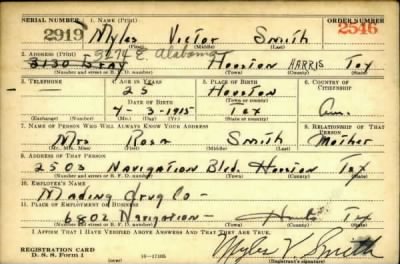 SERIAL NUMBER 1. NAME (Print) ORDER NUMBER
2919 Myles Victor Smith 2546
(First) (Middle) (Last)
2. ADDRESS (Print) E. Alabama
3130 Gray Houston HARRIS Tex
(Number and street or R. F. D. number) (Town) (County) (State)
3. TELEPHONE 4. AGE IN YEARS 5. PLACE OF BIRTH 6. COUNTRY OF CITIZENSHIP
25 Houston
DATE OF BIRTH (Town or county)
4-3-1915 Tex Am.
(Exchange) (Number) (Mo.) (Day) (Yr.) (State or country)
7. NAME OF PERSON WHO WILL ALWAYS KNOW YOUR ADDRESS 8. RELATIONSHIP OF THAT PERSON
Mrs Rosa Smith Mother
(Mr., Mrs., Miss) (First) (Middle) (Last)
9. ADDRESS OF THAT PERSON
2503 Navigation Blvd. Houston Tex
(Number and street or R. F. D. number) (Town) (County) (State)
10. EMPLOYER'S NAME
Mading Drug Co-
11. PLACE OF EMPLOYMENT OR BUSINESS
6802 Navigation- Tex
(Number and street or R. F. D. number) (Town) (County) (State)
I AFFIRM THAT I HAVE VERIFIED ABOVE ANSWERS AND THAT THEY ARE TRUE.
REGISTRATION CARD
D. S. S. Form 1 (over) 16-17105 Myles V. Smith